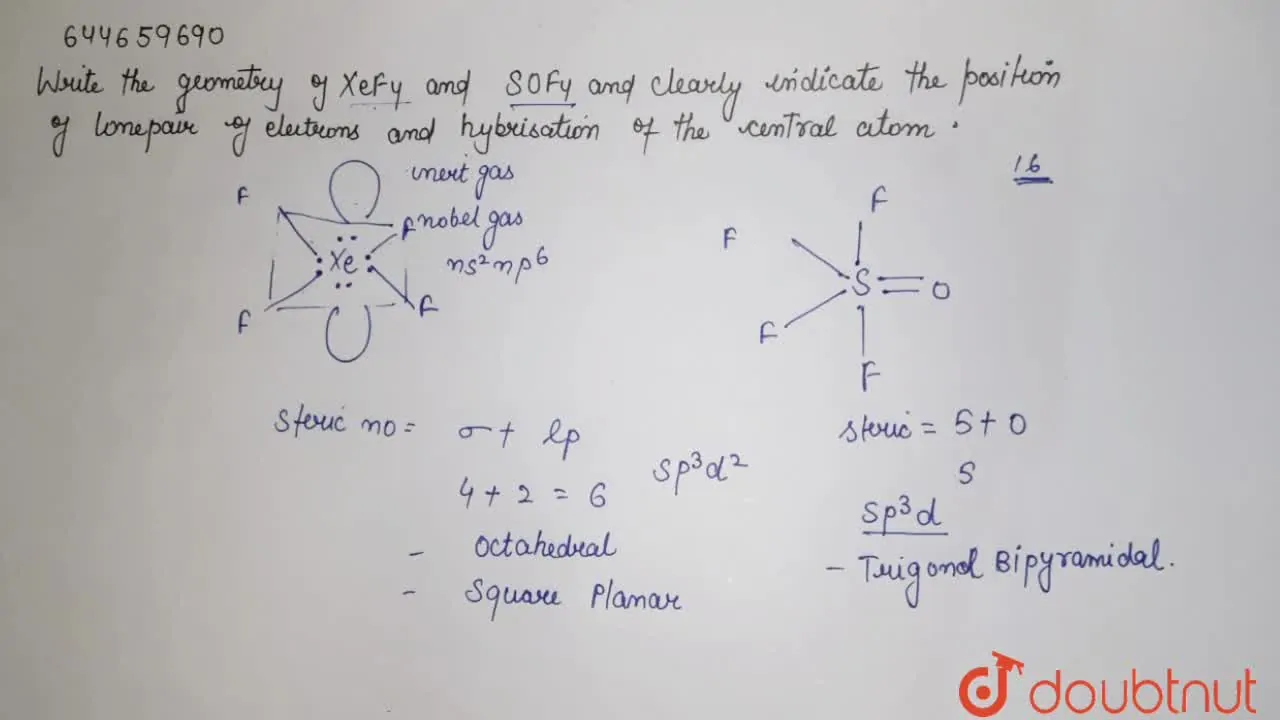 644659690
Write the geometry of XeF4 and SOF4 and clearly indicate the position
of lonepair of electrons and hybrisation of the central atom.
16
inert gas
nobel gas
ns²np⁶
F
F
Xe
F
F
F
F
S
O
F
F
Steric no = σ + lp
4 + 2 = 6
sp³d²
- Octahedral
- Square Planar
steric = 5 + 0
5
sp³d
- Trigonal Bipyramidal.
doubtnut